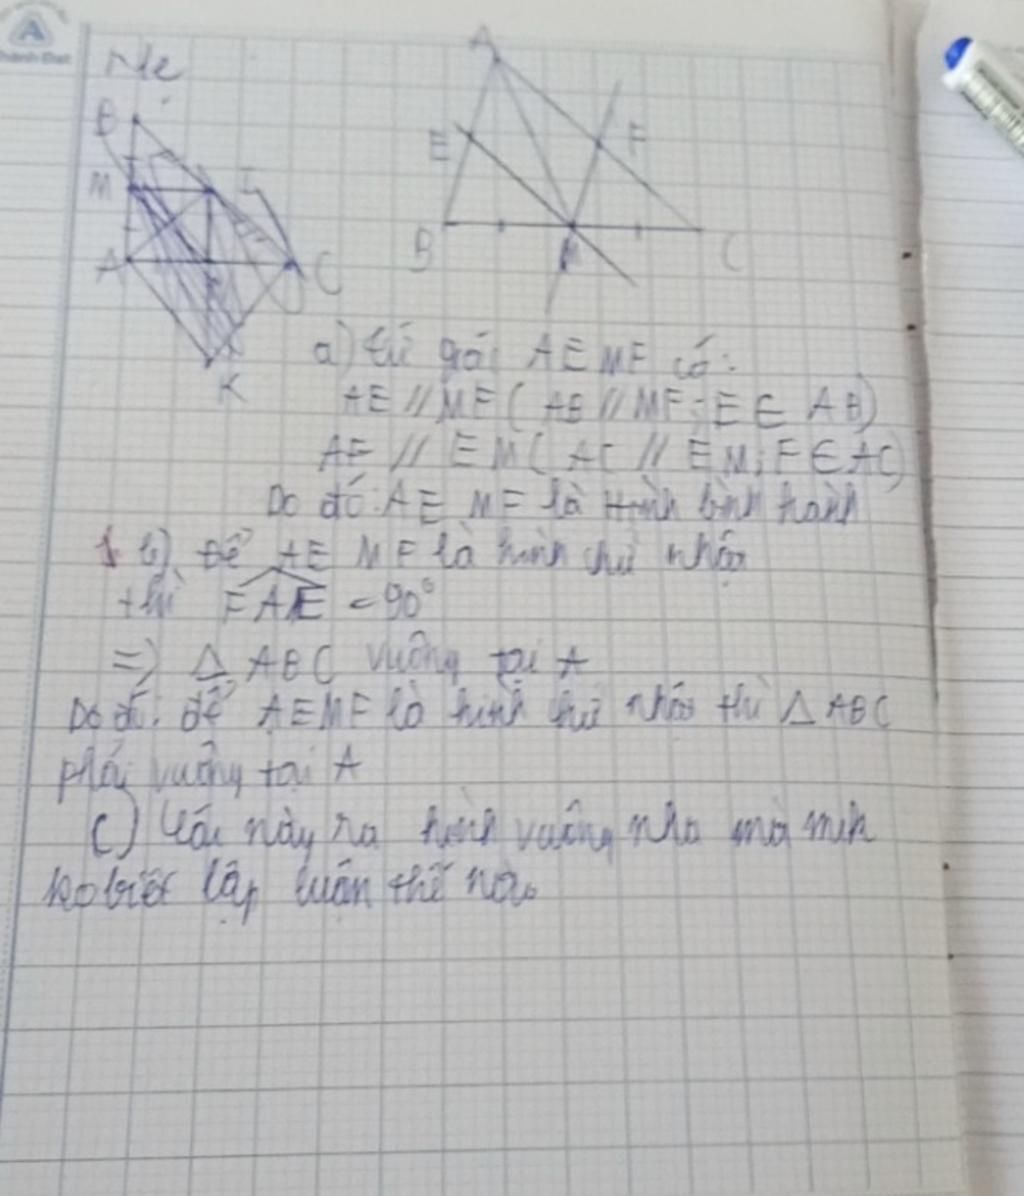 A
B
M
I
A
C
K
A
E
F
B
M
C
a) tứ giác AEMF có:
AE // MF ( AB // MF; E ∈ AB)
AF // EM ( AC // EM; F ∈ AC)
Do đó: AEMF là Hình bình hành
b) Để AEMF là hình chữ nhật
thì FAE = 90°
=) Δ ABC vuông tại A
Do đó: để AEMF là hình chữ nhật thì Δ ABC
phải vuông tại A
c) Câu này ra hình vuông nha mà mình
ko biết lập luận thế nào